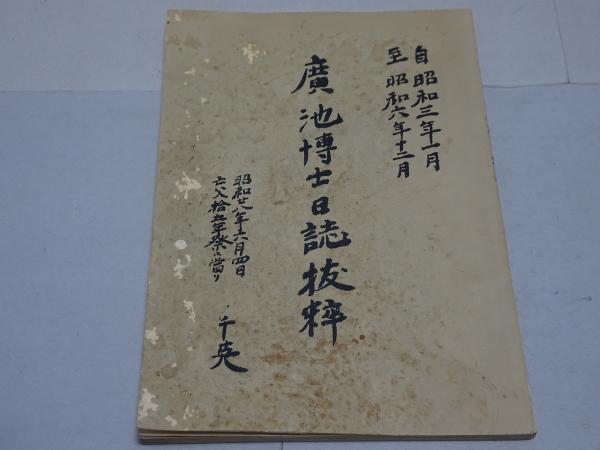 自昭和三年一月
至昭和六年十二月
廣池博士日誌抜粹
昭和廿八年六月四日
亡父拾五年祭ニ當り
千英